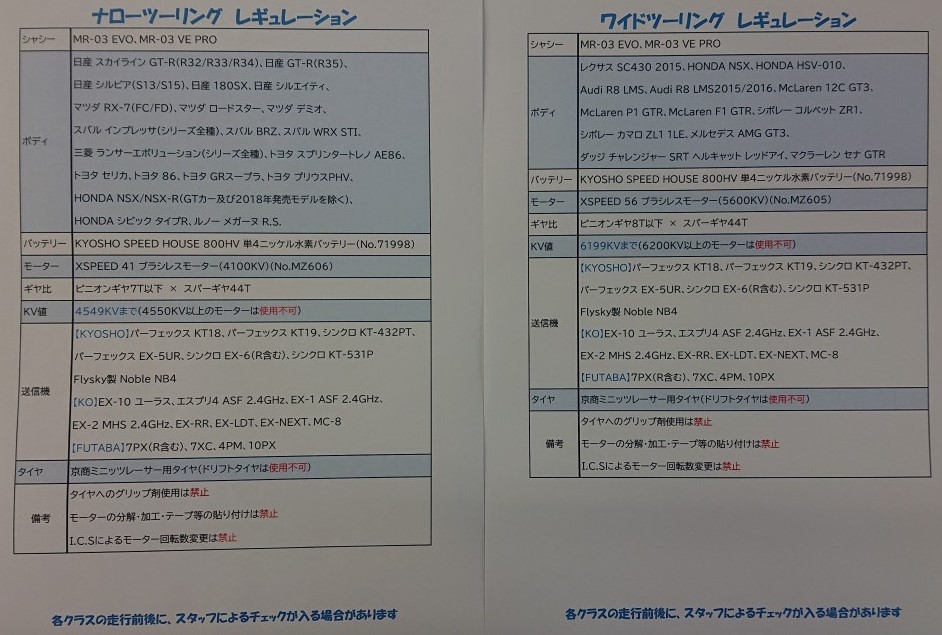 ナローツーリング レギュレーション
シャシー MR-03 EVO、MR-03 VE PRO
日産 スカイライン GT-R(R32/R33/R34)、日産 GT-R(R35)、
日産 シルビア(S13/S15)、日産 180SX、日産 シルエイティ、
マツダ RX-7(FC/FD)、マツダ ロードスター、マツダ デミオ、
スバル インプレッサ(シリーズ全種)、スバル BRZ、スバル WRX STI、
ボディ
三菱 ランサーエボリューション(シリーズ全種)、トヨタ スプリンタートレノ AE86、
トヨタ セリカ、トヨタ 86、トヨタ GRスープラ、トヨタ プリウスPHV、
HONDA NSX/NSX-R(GTカー及び2018年発売モデルを除く)、
HONDA シビック タイプR、ルノー メガーヌ R.S.
バッテリー KYOSHO SPEED HOUSE 800HV 単4ニッケル水素バッテリー(No.71998)
モーター XSPEED 41 ブラシレスモーター(4100KV)(No.MZ606)
ギヤ比 ピニオンギヤ7T以下 × スパーギヤ44T
KV値 4549KVまで(4550KV以上のモーターは使用不可)
【KYOSHO】パーフェックス KT18、パーフェックス KT19、シンクロ KT-432PT、
パーフェックス EX-5UR、シンクロ EX-6(R含む)、シンクロ KT-531P
Flysky製 Noble NB4
送信機
【KO】EX-10 ユーラス、エスプリ4 ASF 2.4GHz、EX-1 ASF 2.4GHz、
EX-2 MHS 2.4GHz、EX-RR、EX-LDT、EX-NEXT、MC-8
【FUTABA】7PX(R含む)、7XC、4PM、10PX
タイヤ 京商ミニッツレーサー用タイヤ(ドリフトタイヤは使用不可)
タイヤへのグリップ剤使用は禁止
備考 モーターの分解・加工・テープ等の貼り付けは禁止
I.C.Sによるモーター回転数変更は禁止
各クラスの走行前後に、スタッフによるチェックが入る場合があります
ワイドツーリング レギュレーション
シャシー MR-03 EVO、MR-03 VE PRO
レクサス SC430 2015、HONDA NSX、HONDA HSV-010、
Audi R8 LMS、Audi R8 LMS2015/2016、McLaren 12C GT3、
ボディ McLaren P1 GTR、McLaren F1 GTR、シボレー コルベット ZR1、
シボレー カマロ ZL1 1LE、メルセデス AMG GT3、
ダッジ チャレンジャー SRT ヘルキャット レッドアイ、マクラーレン セナ GTR
バッテリー KYOSHO SPEED HOUSE 800HV 単4ニッケル水素バッテリー(No.71998)
モーター XSPEED 56 ブラシレスモーター(5600KV)(No.MZ605)
ギヤ比 ピニオンギヤ8T以下 × スパーギヤ44T
KV値 6199KVまで(6200KV以上のモーターは使用不可)
【KYOSHO】パーフェックス KT18、パーフェックス KT19、シンクロ KT-432PT、
パーフェックス EX-5UR、シンクロ EX-6(R含む)、シンクロ KT-531P
Flysky製 Noble NB4
送信機
【KO】EX-10 ユーラス、エスプリ4 ASF 2.4GHz、EX-1 ASF 2.4GHz、
EX-2 MHS 2.4GHz、EX-RR、EX-LDT、EX-NEXT、MC-8
【FUTABA】7PX(R含む)、7XC、4PM、10PX
タイヤ 京商ミニッツレーサー用タイヤ(ドリフトタイヤは使用不可)
タイヤへのグリップ剤使用は禁止
備考 モーターの分解・加工・テープ等の貼り付けは禁止
I.C.Sによるモーター回転数変更は禁止
各クラスの走行前後に、スタッフによるチェックが入る場合があります